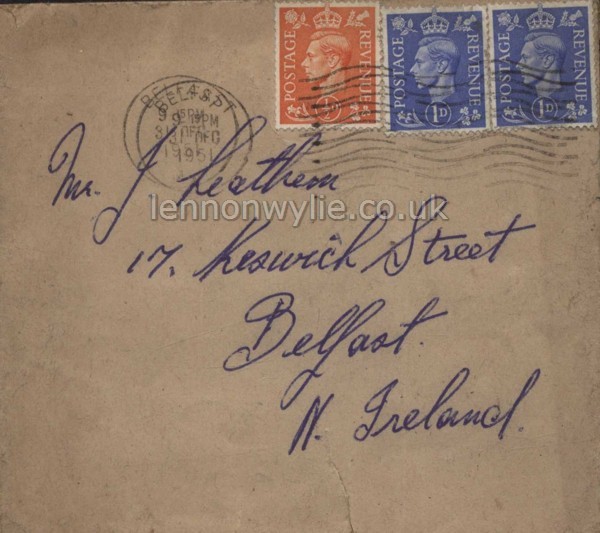 POSTAGE REVENUE ½D
POSTAGE REVENUE 1D
POSTAGE REVENUE 1D
BELFAST
9 15PM
31 DEC
1951
Mr. J Leathem
lennonwylie.co.uk
17, Keswick Street
Belfast.
N. Ireland.